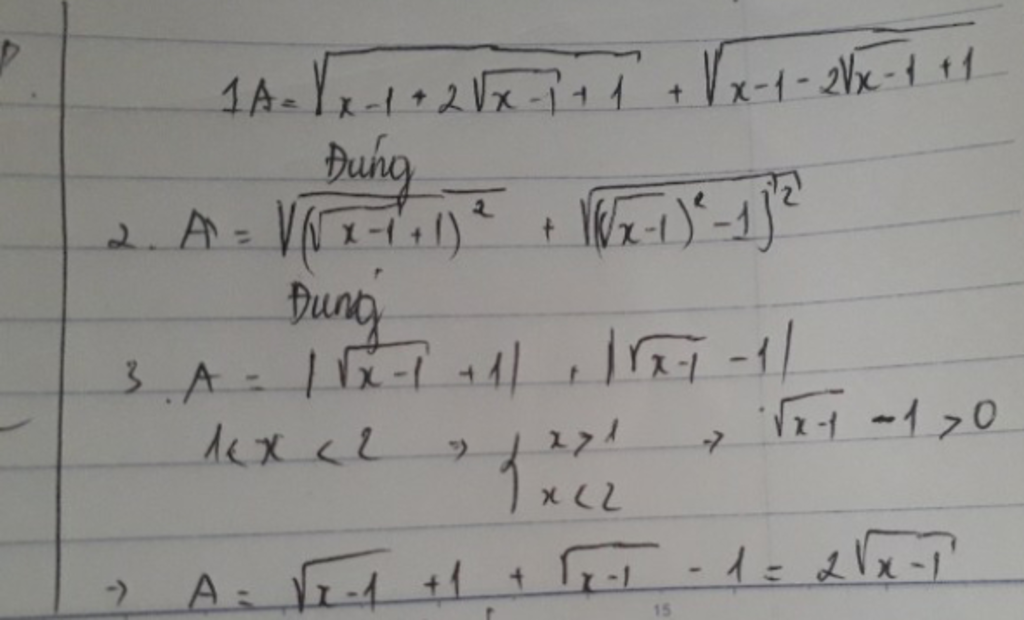 1 A = √(x-1 + 2√(x-1) + 1) + √(x-1 - 2√(x-1) + 1)
Đúng
2. A = √((√(x-1) + 1)²) + √((√(x-1))² - 1]²)
Đúng
3. A = |√(x-1) + 1| + |√(x-1) - 1|
1 < x < 2 → { x > 1 → √(x-1) - 1 > 0
x < 2
→ A = √(x-1) + 1 + √(x-1) - 1 = 2√(x-1)
15